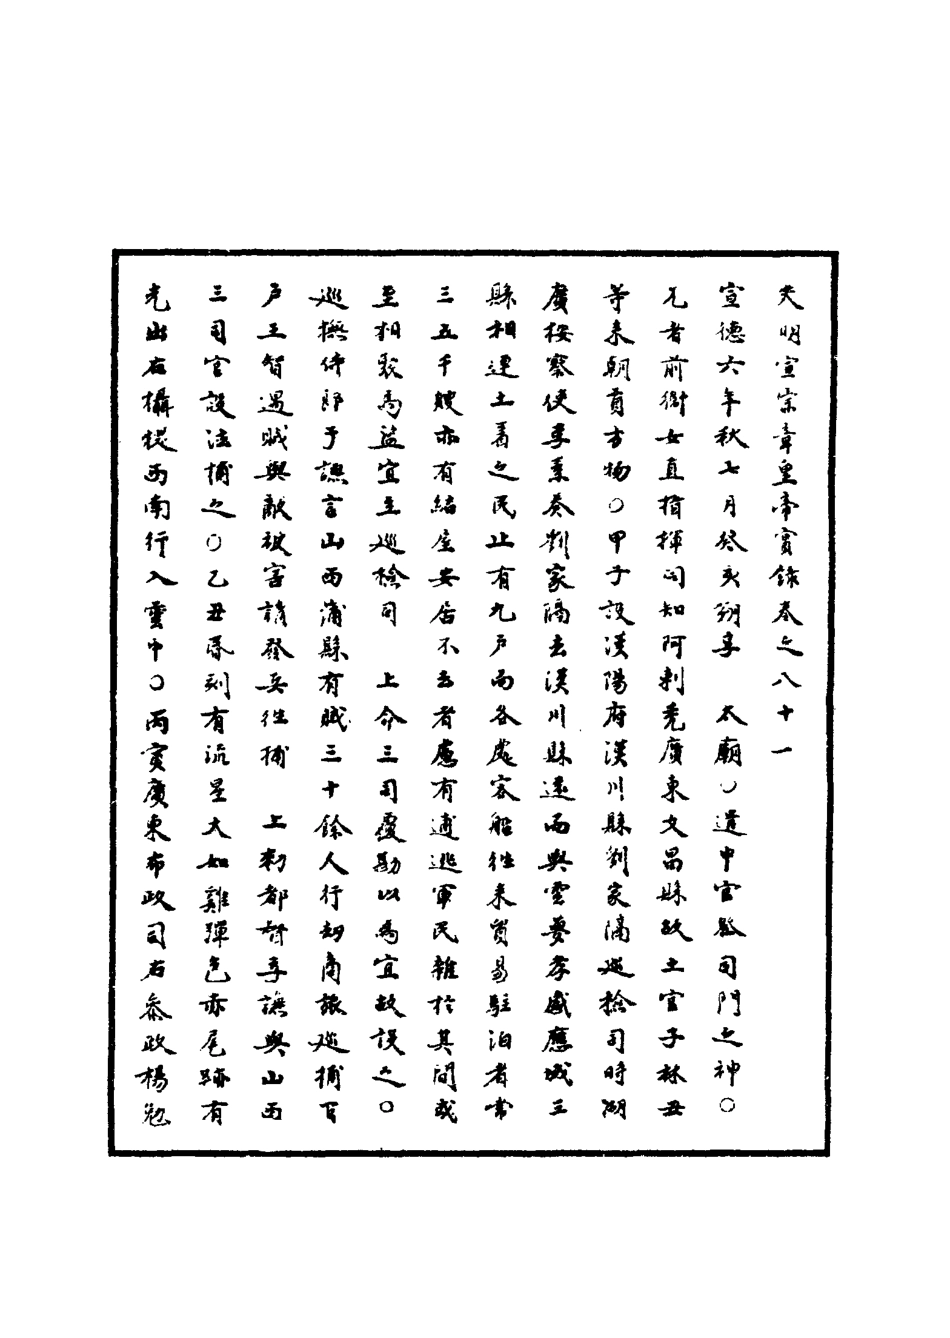 大明宣宗章皇帝實錄卷之八十一
宣德六年秋七月癸亥朔享　太廟○遣中官祭司門之神○
兀者前衛女直指揮同知阿剌禿廣東文昌縣故土官子林丑
等來朝貢方物○甲子設漢陽府漢川縣劉家隔巡檢司時湖
廣按察使李素奏劉家隔去漢川縣遠而與雲夢孝感應城三
縣相連土著之民止有九戶而各處客船往來貿易駐泊者常
三五千艘亦有結屋安居不去者慮有逋逃軍民雜於其間或
至相聚為盜宜立巡檢司　上命三司覆勘以為宜故設之○
巡撫侍郎于謙言山西蒲縣有賊三十餘人行刼商旅巡捕百
戶王智遇賊與敵被害請發兵往捕　上勑都督李謙與山西
三司官設法捕之○乙丑昏刻有流星大如雞彈色赤尾跡有
光出右攝提西南行入雲中○丙寅廣東布政司右叅政楊勉